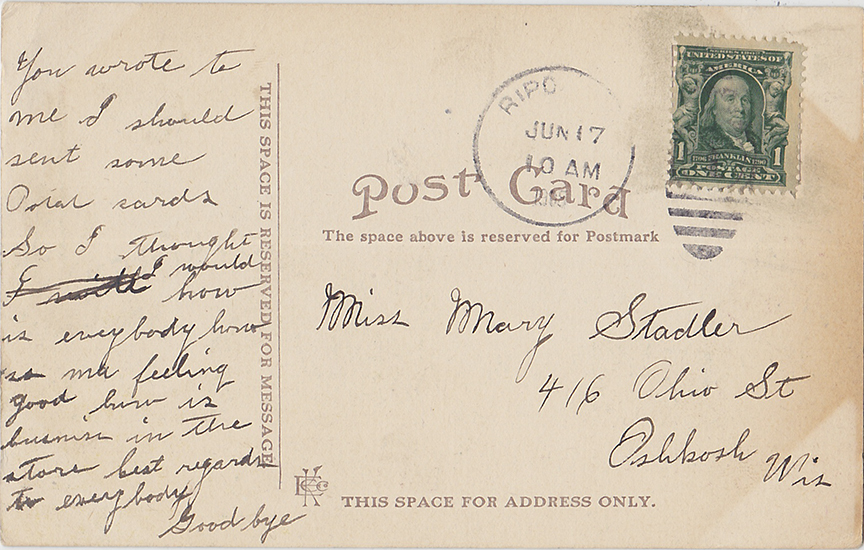 You wrote to
me I should
sent some
Postal cards
So I thought
I would
I will how
is everybody how
is ma feeling
good how is
busniss in the
store best regards
to everybody
Good bye
THIS SPACE IS RESERVED FOR MESSAGE
RIPO
JUN 17
10 AM
SERIES 1902
UNITED STATES OF
AMERICA
1 1
1706 FRANKLIN 1790
POSTAGE
ONE CENT
Post Card
The space above is reserved for Postmark
Miss Mary Stadler
416 Ohio St
Oshkosh Wis
THIS SPACE FOR ADDRESS ONLY.